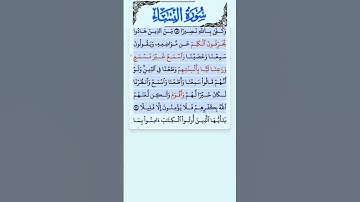 سُورَةُ النِّسَاءِ
وَكَفَىٰ بِاللَّهِ نَصِيرًا ۝ مِّنَ الَّذِينَ هَادُوا
يُحَرِّفُونَ الْكَلِمَ عَن مَّوَاضِعِهِ وَيَقُولُونَ
سَمِعْنَا وَعَصَيْنَا وَاسْمَعْ غَيْرَ مُسْمَعٍ
وَرَاعِنَا لَيًّا بِأَلْسِنَتِهِمْ وَطَعْنًا فِي الدِّينِ وَلَوْ
أَنَّهُمْ قَالُوا سَمِعْنَا وَأَطَعْنَا وَاسْمَعْ وَانظُرْنَا
لَكَانَ خَيْرًا لَّهُمْ وَأَقْوَمَ وَلَٰكِن لَّعَنَهُمُ
اللَّهُ بِكُفْرِهِمْ فَلَا يُؤْمِنُونَ إِلَّا قَلِيلًا ۝
يَا أَيُّهَا الَّذِينَ أُوتُوا الْكِتَابَ ءَامِنُوا بِمَا